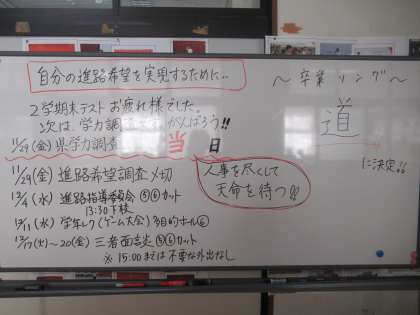 自分の進路希望を実現するために…
2学期末テストお疲れ様でした。
次は、学力調査、がんばろう!!
11/29(金)県学力調査 当日
11/29(金)進路希望調査〆切
12/4(水)進路指導委員会⑤⑥カット
13:30下校
12/11(水)学年レク(ゲーム大会)多目的ホール⑥
12/17(火)~20(金)三者面談⑤⑥カット
※15:00までは不要な外出なし
人事を尽くして
天命を待つ!!
~卒業ソング~
道
に決定!!